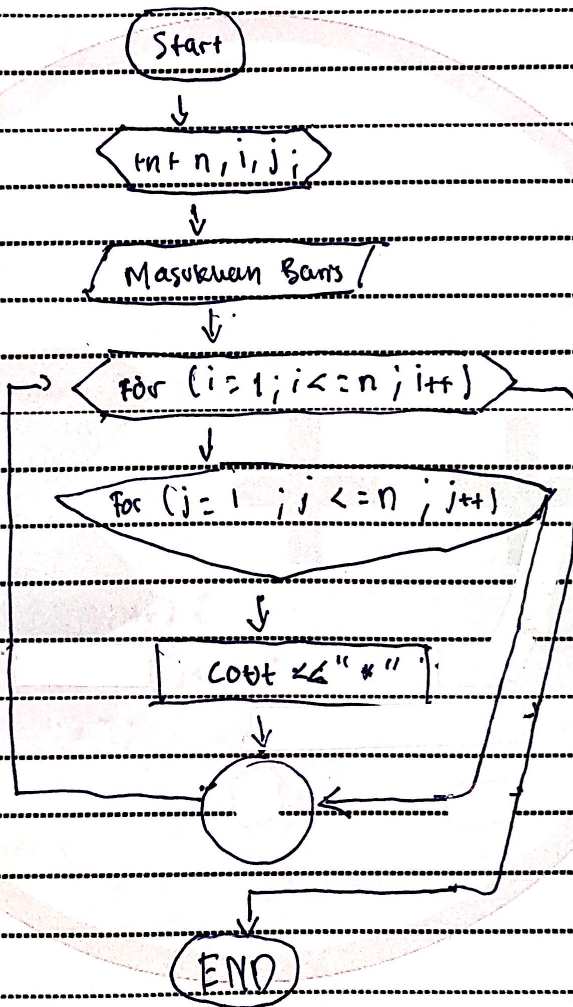 Start
int n, i, j;
Masukkan Baris
For (i = 1; i <= n; i++)
For (j = 1 ; j <= n ; j++)
cout << "*"
END